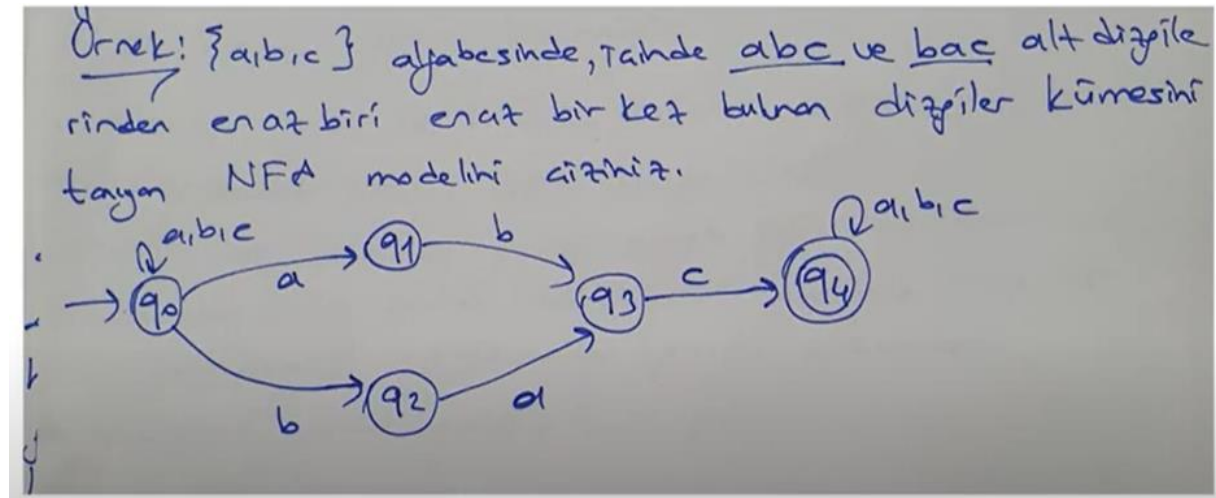 Örnek: {a,b,c} alfabesinde, içinde abc ve bac alt dizgile
rinden en az biri en az bir kez bulnan dizgiler kümesini
tanıyan NFA modelini çiziniz.
a,b,c
a
q1
b
a,b,c
q0
q3
c
q4
b
q2
a